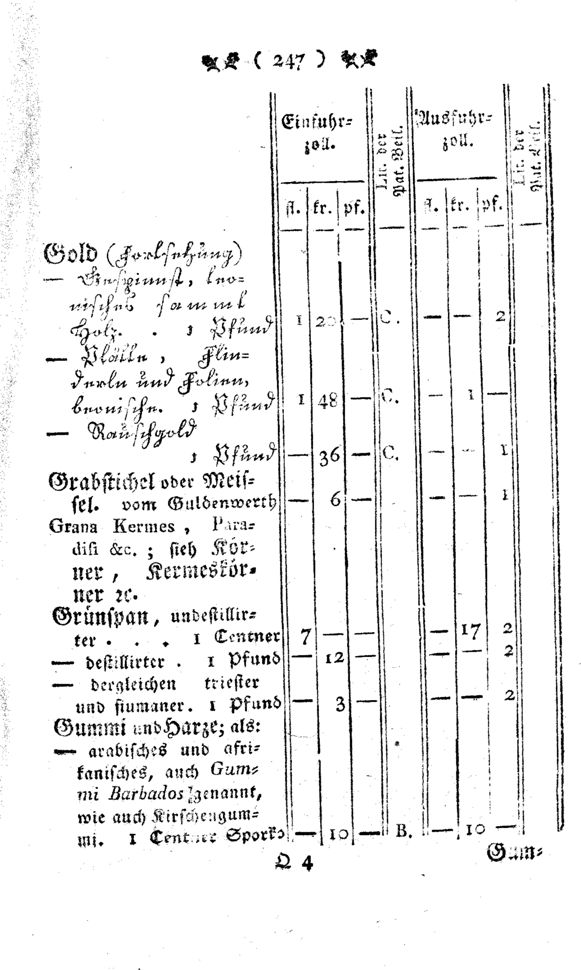 ( 247 )
Einfuhr= zoll. Lit. der Pat. Beil. Ausfuhr= zoll. Lit. der Pat. Beil.
fl. kr. pf. fl. kr. pf.
Gold (Fortsetzung)
— Gespinnst, leo=
nisches sammt
Holz. . 1 Pfund 1 20 — C. — — 2
— Plätte, Flin=
derln und Folien,
leonische. 1 Pfund 1 48 — C. — 1 —
— Rauschgold
1 Pfund — 36 — C. — — 1
Grabstichel oder Meis=
sel. vom Guldenwerth — 6 — — 1
Grana Kermes, Para=
disi &c.; sieh Kör=
ner, Kermeskör=
ner ꝛc.
Grünspan, undestillir=
ter . . . 1 Centner 7 — — — 17 2
— destillirter . 1 Pfund — 12 — — — 2
— dergleichen triester
und fiumaner. 1 Pfund — 3 — — 2
Gummi und Harze; als:
— arabisches und afri=
kanisches, auch Gum=
mi Barbados genannt,
wie auch Kirschengum=
mi. 1 Centner Sporko — 10 — B. — 10 —
Q 4 Gum=